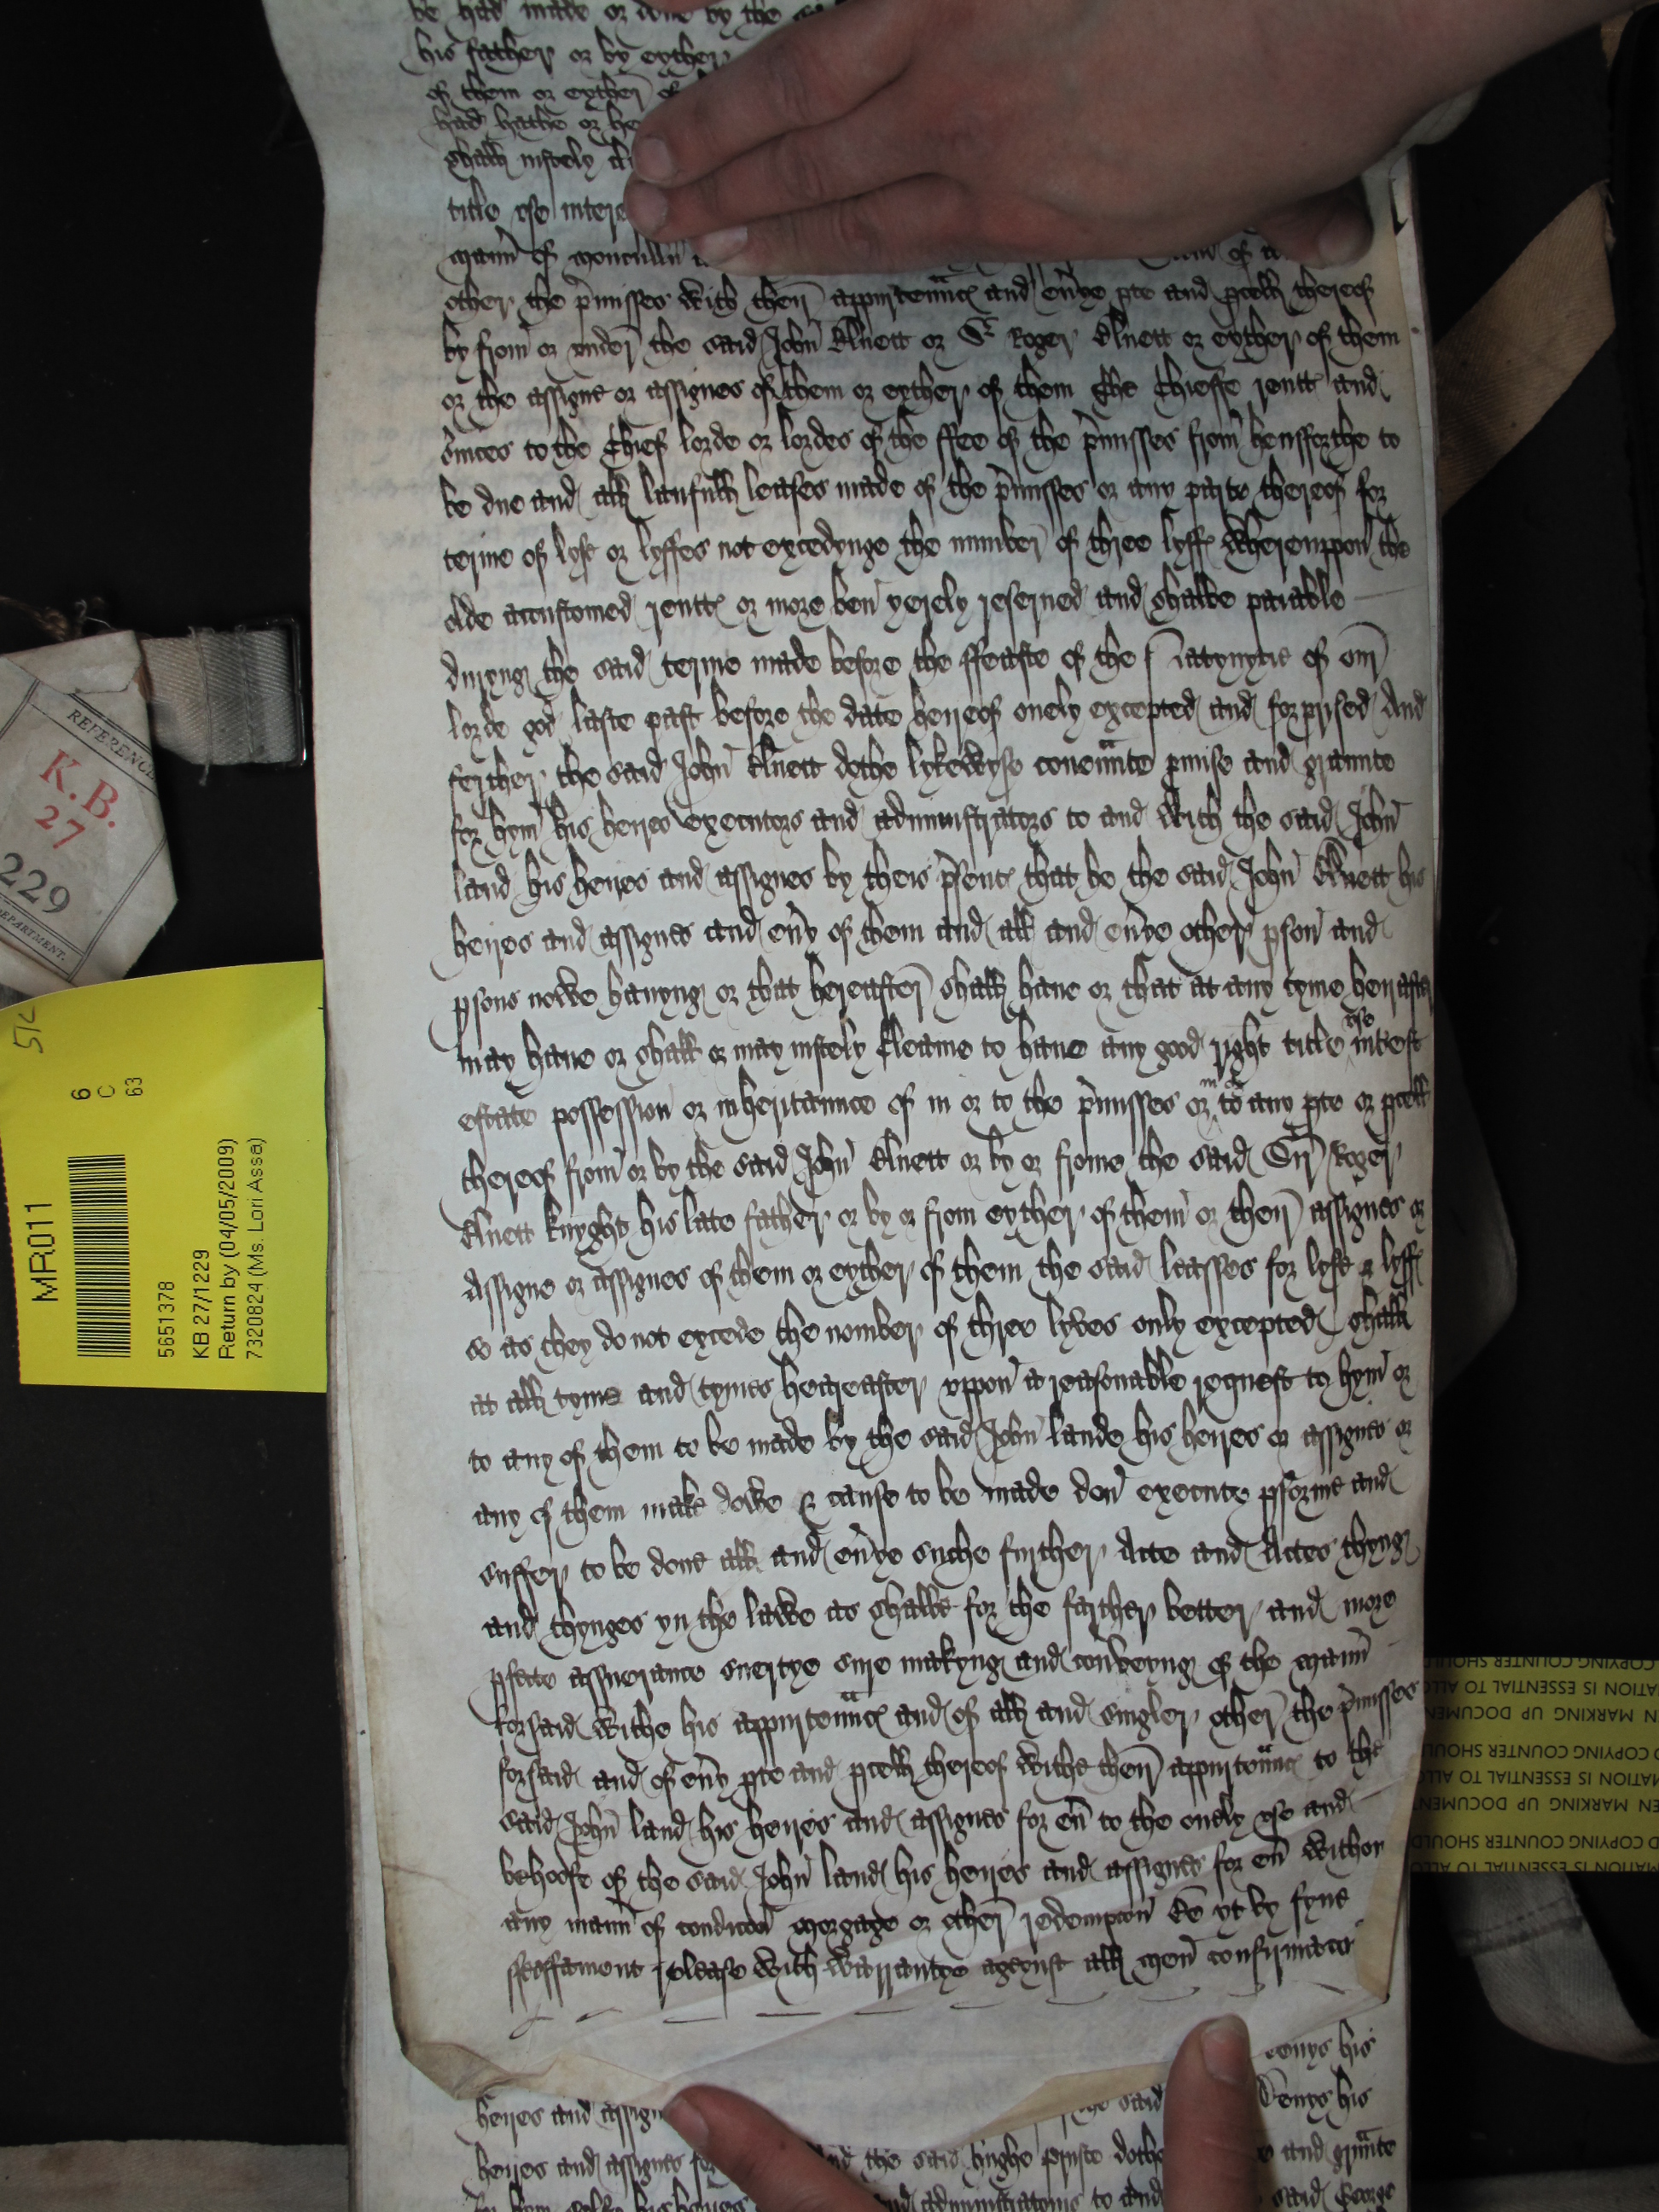 be had made or done by the
his father or by eyther
of them or eyther of
had hathe or he
shall justely
title vse intere
man' of
other the p'misses with their appurten'nc' and eu'ye p'te and p'cell thereof
by from or vnder the said John Bluett or Sr Roger Bluett or eyther of them
or the assigne or assignes of them or eyther of them the Chieffe rentt' and
s'uices to the Chief lorde or lordes of the ffee of the p'misses from hensforthe to
be due and all laufull leases made of the p'misses or any parte thereof for
terme of lyfe or lyffes not excedynge the number of three lyff' Whereuppon the
olde accustomed rentt' or more ben yerely reserued and shalbe paiable
duryng the said terme made before the ffeaste of the Natyvytie of our
lorde god laste past before the date hereof onely excepted and forprised And
ferther the said John Bluett dothe lykewyse couen'nte p'mise and graunte
for hym his heires executors and administrators to and with the said John
land his heires and assignes by theis p'sent' that he the said John Bluett his
heires and assignes and eu'y of them and all and eu'ye other p'son and
p'sons nowe hauyng or that hereafter shall haue or that at any tyme herafter
may haue or shall or may justely Cleame to haue any good right title vse int'est
estate possession or inheritaunce of in or to the p'misses or in or to any p'te or p'cell
thereof from or by the said John Bluett or by or frome the said Sr Roger
Bluett knyght his late father or by or from eyther of them or their assignes or
Assigne or assignes of them or eyther of them the said leasses for lyfe or lyff'
so as they do not excede the nomber of three lyves only excepted shall
at all tyme and tymes hereafter vppon a reasonable request to hym or
to any of them to be made by the said John lande his heires or assignes or
any of them make dowe & cause to be made don' execute p'forme and
suffer to be done all and eu'ye suche further Acte and Actes thyng
and thynges yn the lawe as shalbe for the farther better and more
p'fecte assuerance suertye sure makyng and conveyng of the man'
forsaid withe his appurten'nc' and of all and singler other the p'misses
forsaid and of eu'y p'te and p'cell thereof withe their appurten'nc' to the
said John land his heires and assignes for eu' to the onely vse and
behoofe of the said John land his heires and assignes for eu' withou
any man' of condicion morgage or other redempcion be yt by fyne
ffeoffament release with warrantye ageynst all men confirmacio
eonys his
heires and assign
the said
Denys his
heires and assignes for
nd the said hughe prusto dothe
and gr'nte
for hym selfe his heires
and administrators to and
said George
REFERENCE
K.B.
27
229
DEPARTMENT.
MR011
6
C
63
5651378
KB 27/1229
Return by (04/05/2009)
7320824 (Ms. Lori Assa)
COPYING COUNTER SHOUL
ATION IS ESSENTIAL TO ALLO
N MARKING UP DOCUMEN